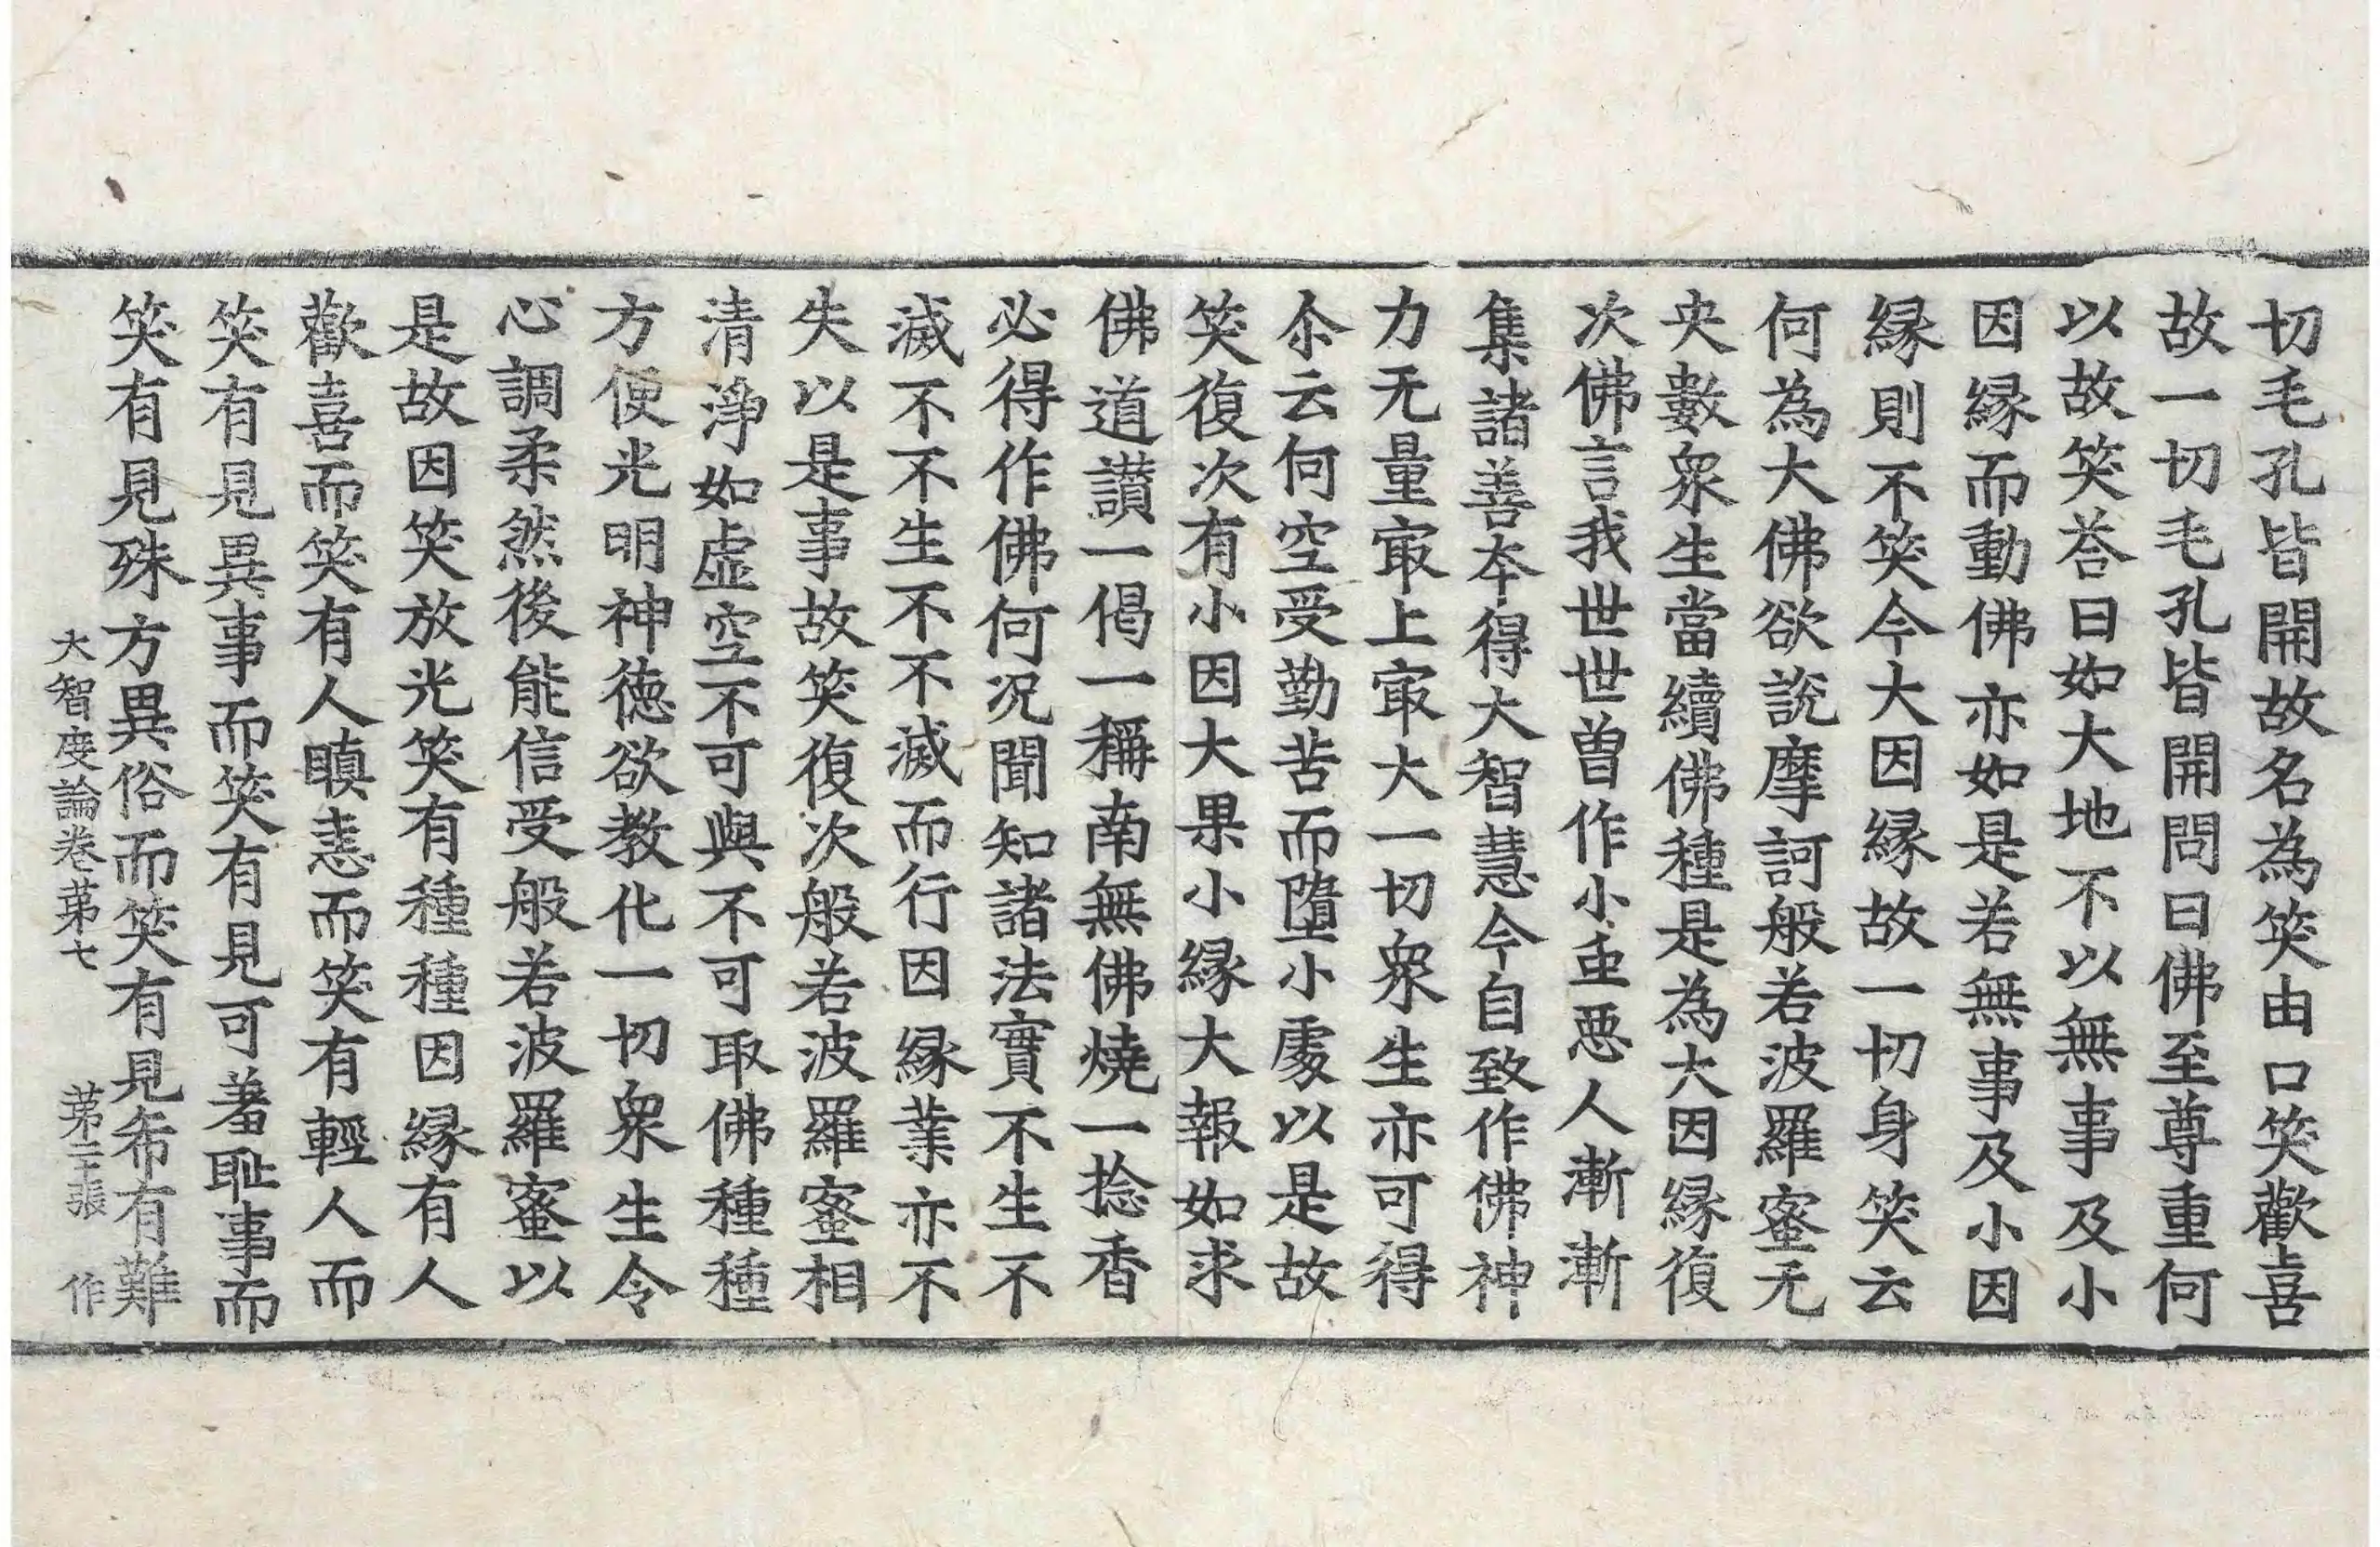 切毛孔皆開故名為笑由口笑歡喜
故一切毛孔皆開問曰佛至尊重何
以故笑荅曰如大地不以無事及小
因縁而動佛亦如是若無事及小因
縁則不笑今大因縁故一切身笑云
何為大佛欲說摩訶般若波羅蜜无
央數衆生當續佛種是為大因縁復
次佛言我世世曾作小䖝惡人漸漸
集諸善夲得大智慧今自致作佛神
力无量㝡上㝡大一切衆生亦可得
尒云何空受勤苦而墮小處以是故
笑復次有小因大果小縁大報如求
佛道讃一偈一稱南無佛燒一捻香
必得作佛何況聞知諸法實不生不
滅不不生不不滅而行因縁業亦不
失以是事故笑復次般若波羅蜜相
清淨如虛空不可與不可取佛種種
方便光明神徳欲教化一切衆生令
心調柔然後能信受般若波羅蜜以
是故因笑放光笑有種種因縁有人
歡喜而笑有人瞋恚而笑有輕人而
笑有見異事而笑有見可羞恥事而
笑有見殊方異俗而笑有見希有難
大智度論卷苐七 苐二十張 作